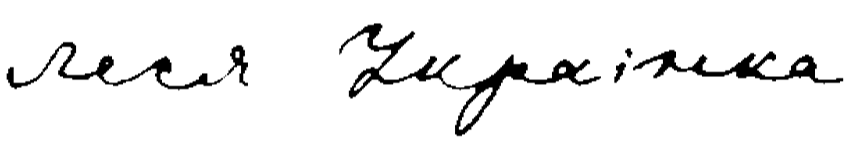 Леся Українка